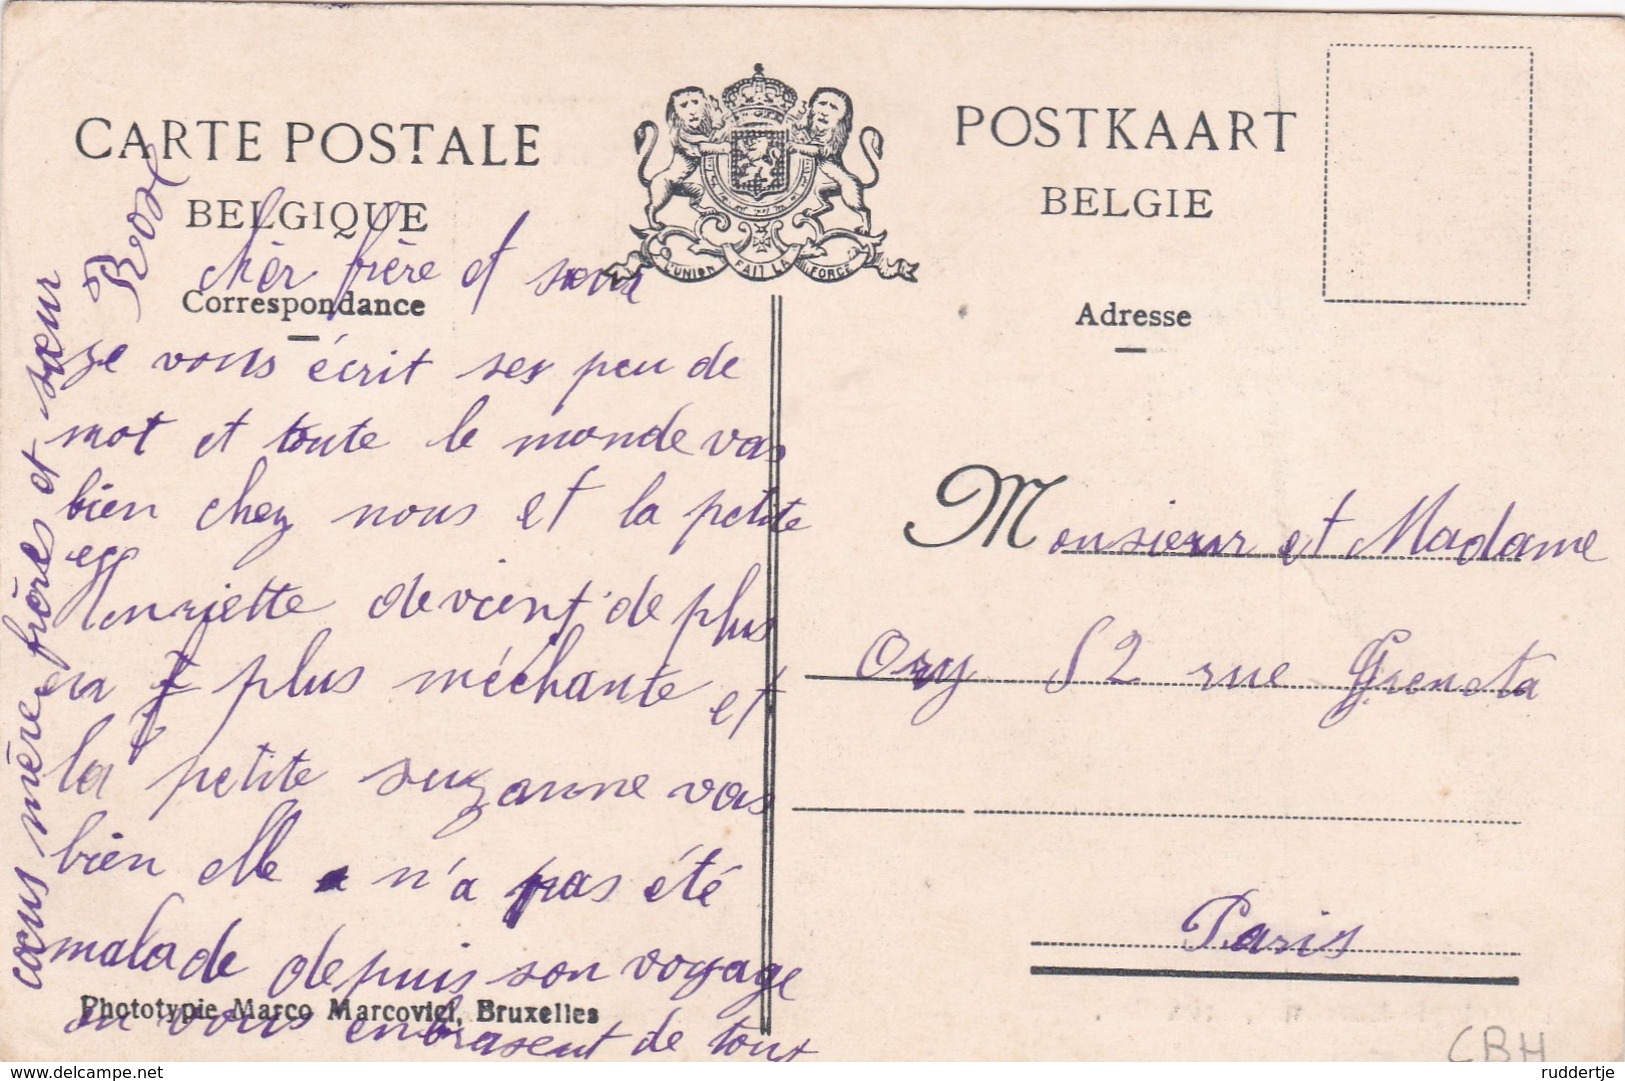 CARTE POSTALE
BELGIQUE
Correspondance
L'UNION FAIT LA FORCE
POSTKAART
BELGIE
Adresse
cher frère et sœur
je vous écrit ses peu de
mot et toute le monde vas
bien chez nous et la petite
Henriette devient de plus
en plus méchante et
la petite suzanne vas
bien elle n'a pas été
malade depuis son voyage
on vous enbrasent de tout
cœus mère frères et sœur
Rose
Monsieur et Madame
Ory 52 rue Greneta
Paris
Phototypie Marco Marcovici, Bruxelles
CBH
© the-email
ruddertje